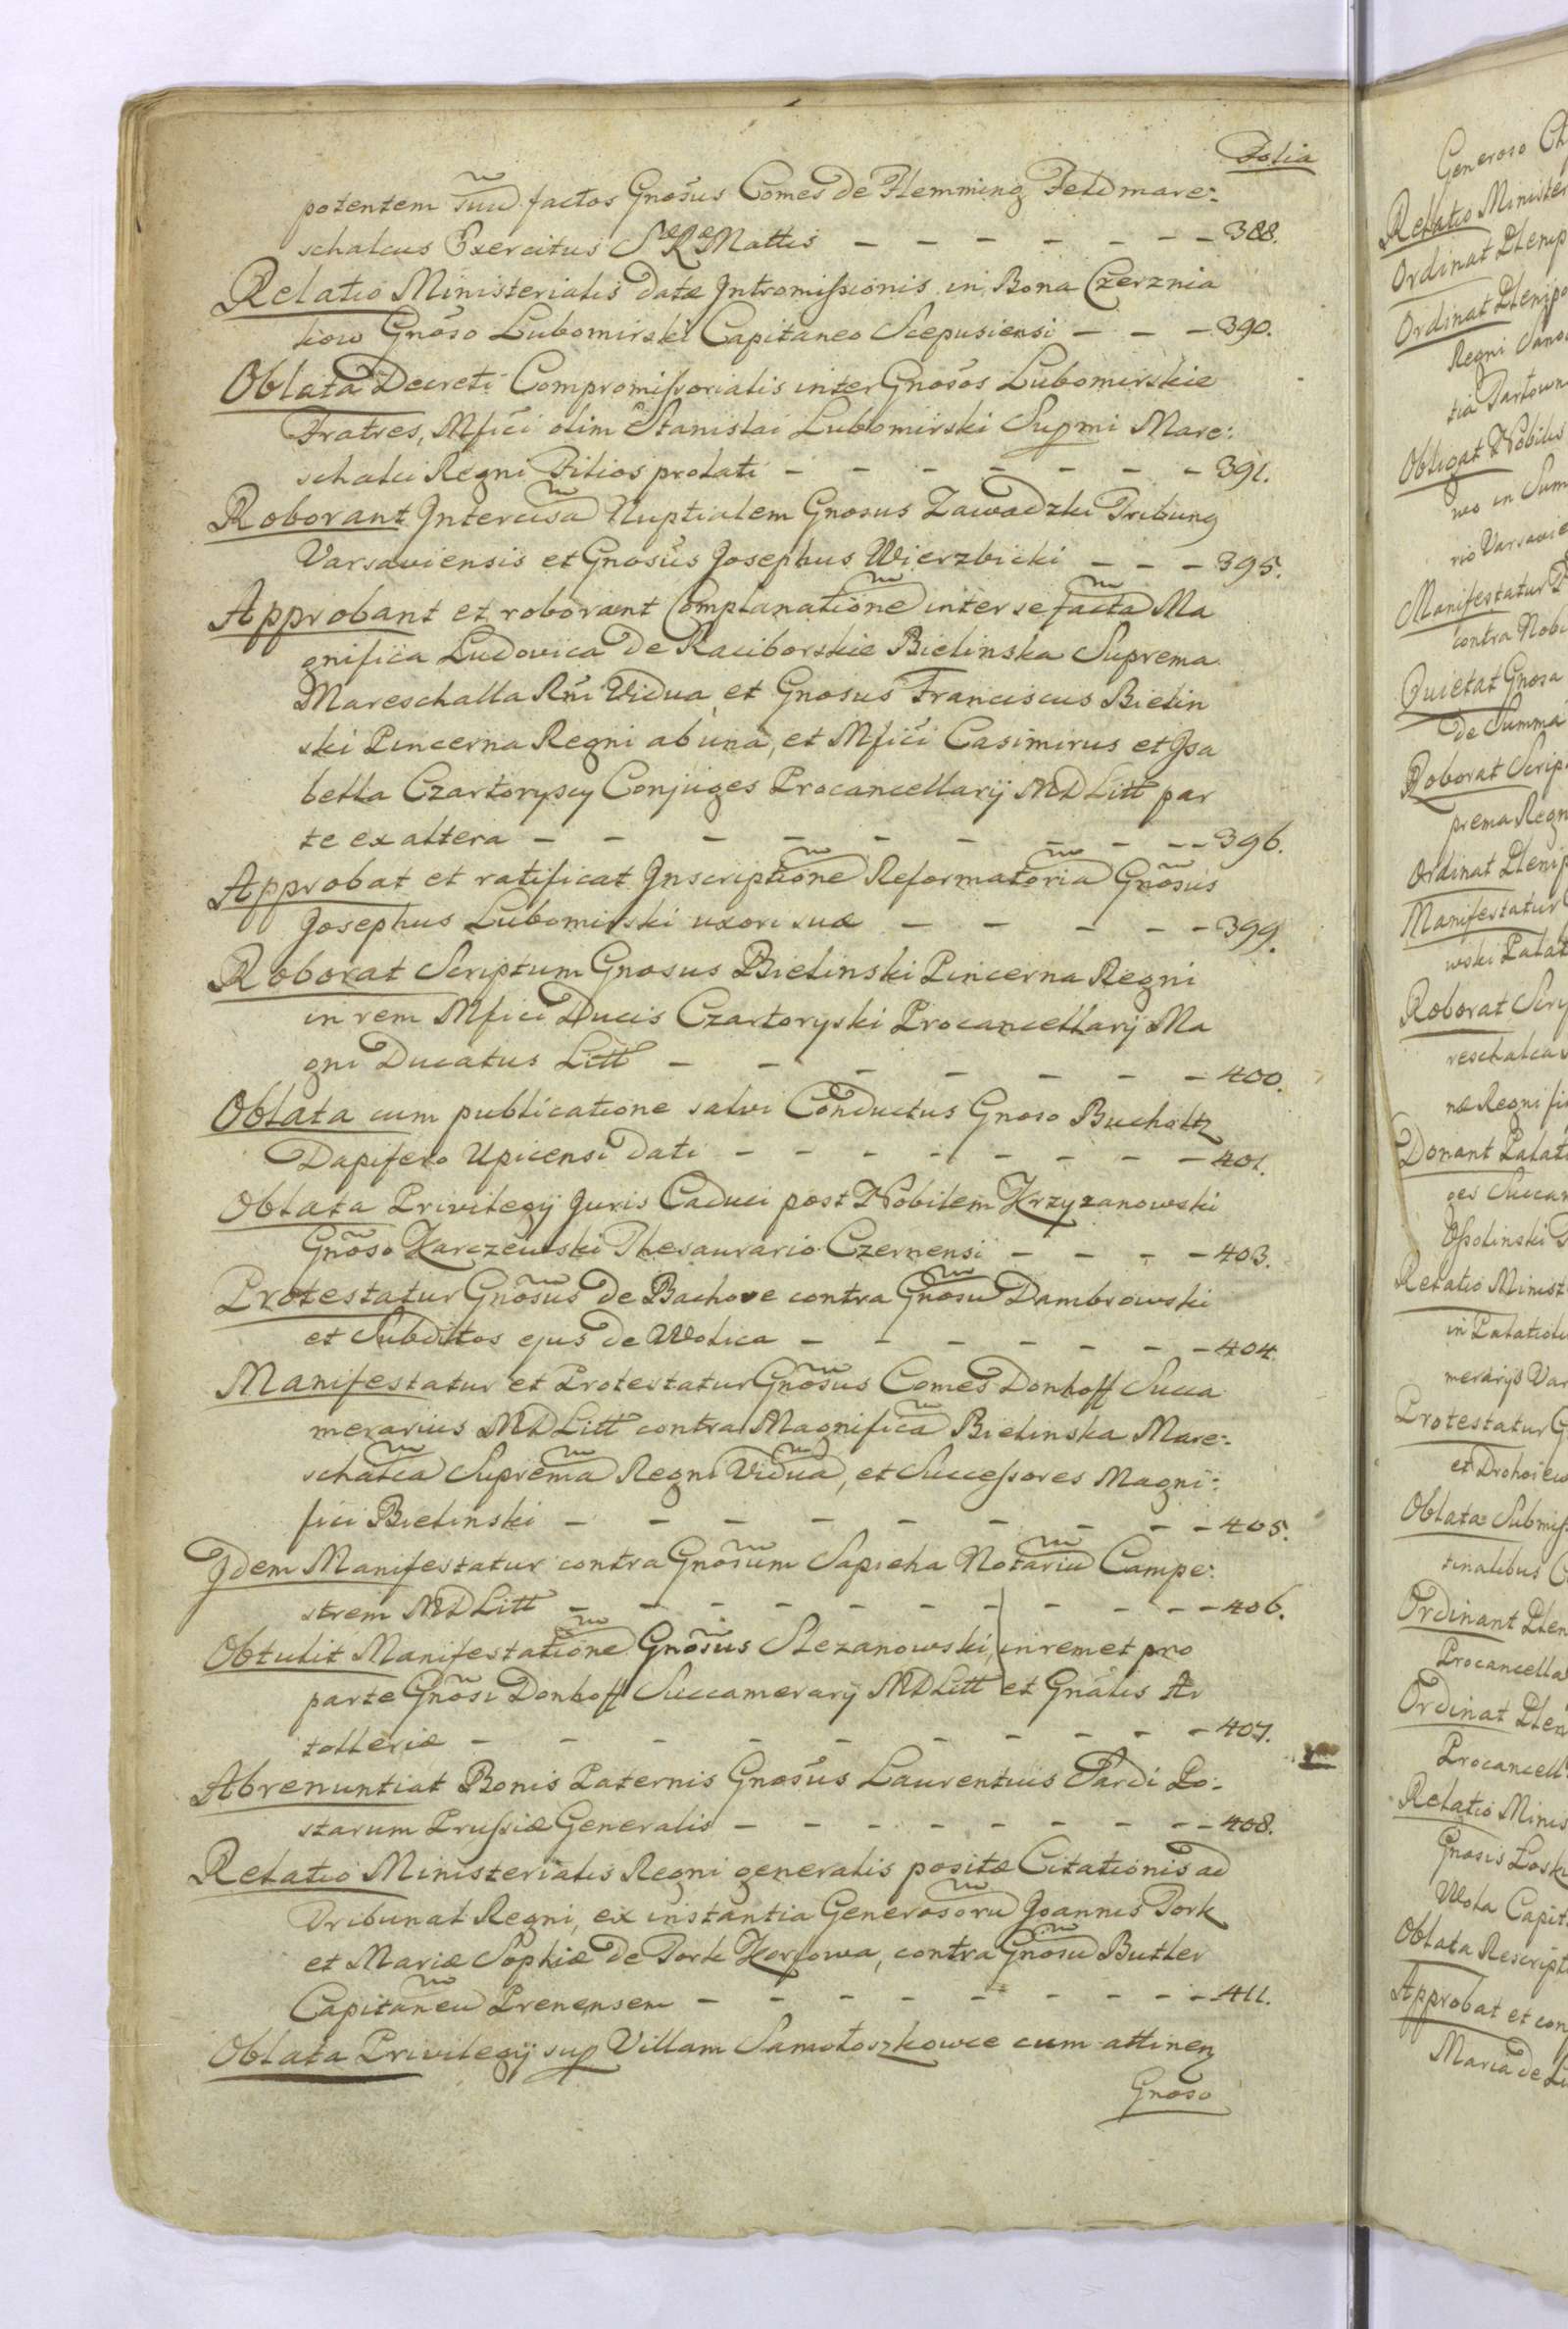 Folia
potentem suũ factos Gnosus Comes de Flemming Feldmare:
schalcus Exercitus Sæ Ræ Mattis - - - - - - - 388.
Relatio Ministerialis datæ Intromissionis in Bona Czerznia
kow Gnoso Lubomirski Capitaneo Scepusiensi - - - 390.
Oblata Decreti Compromissorialis inter Gnosos Lubomirskie
Fratres, Mfici olim Stanislai Lubomirski Supmi Mare:
schalci Regni Filios prolati - - - - - - - 391.
Roborant Intercisã Nuptialem Gnosus Zawadzki Tribung
Varsaviensis et Gnosus Josephus Wierzbicki - - - 395.
Approbant et roborant Complanationẽ inter se factã Ma
gnifica Ludovica de Raciborskie Bielinska Suprema
Mareschalla Rni Vidua et Gnosus Franciscus Bielin
ski Pincerna Regni ab una, et Mfici Casimirus et Isa
bella Czartoryscy Conjuges Procancellarij MDLitt par
te ex altera - - - - - - - - - 396.
Approbat et ratificat Inscriptionẽ Reformatoriã Gnosus
Josephus Lubomirski uxori suæ - - - - - 399.
Roborat Scriptum Gnosus Bielinski Pincerna Regni
in rem Mfici Ducis Czartoryski Procancellarij Ma
gni Ducatus Litt - - - - - - - 400.
Oblata cum publicatione salvi Conductus Gnoso Bucholtz
Dapifero Upicensi dati - - - - - - - - 401.
Oblata Privilegij Juris Caduci post Nobilem Krzyzanowski
Gnoso Karczewski Thesaurario Czernensi - - - - 403.
Protestatur Gnosus de Bachove contra Gnosũ Dambrowski
et Subditos ejus de Wolica - - - - - - 404.
Manifestatur et Protestatur Gnosus Comes Donhoff Succa
merarius MDLitt contra Magnificã Bielinska Mare:
schalcã Supremã Regni Viduã, et Successores Magni:
fici Bielinski - - - - - - - - - 405.
Idem Manifestatur contra Gnosum Sapieha Notariũ Campe:
strem MDLitt - - - - - - - - - - 406.
Obtulit Manifestationẽ Gnosus Slezanowski, in rem et pro
parte Gnosi Donhoff Succamerarij MDLitt et Gnalis Ar
tolleriæ - - - - - - - - - 407.
Abrenuntiat Bonis Paternis Gnosus Laurentius Pardi Po:
starum Prussiæ Generalis - - - - - - - - 408.
Relatio Ministerialis Regni generalis positæ Citationis ad
Tribunal Regni, ex instantia Generosorũ Joannis Tork
et Mariæ Sophiæ de Tork Korfowa, contra Gnosũ Butler
Capitaneũ Prenensem - - - - - - - - 411.
Oblata Privilegij sup Villam Samotoszkowce cum attinen
Gnoso
Generoso
Relatio Minister
Ordinat Plenip
Ordinat Plenipo
Regni
Obligat Nobilis
Manifestatur
contra Nobi
Quietat Gnosa
de Summa
Roborat Scrip
prema Regn
Ordinat Plenip
Manifestatur
wski Palat
Roborat Scrip
reschalca
næ Regni fi
Donant Palat
ges Succa
Ossolinski
Relatio Minist
in Palatio
merarijs Var
Protestatur G
Oblata Submiss
Ordinant Plen
Procancella
Ordinat Plen
Procancell
Relatio Minis
Gnosis
Wola Capit
Oblata Rescript
Approbat et con
Maria de Lu